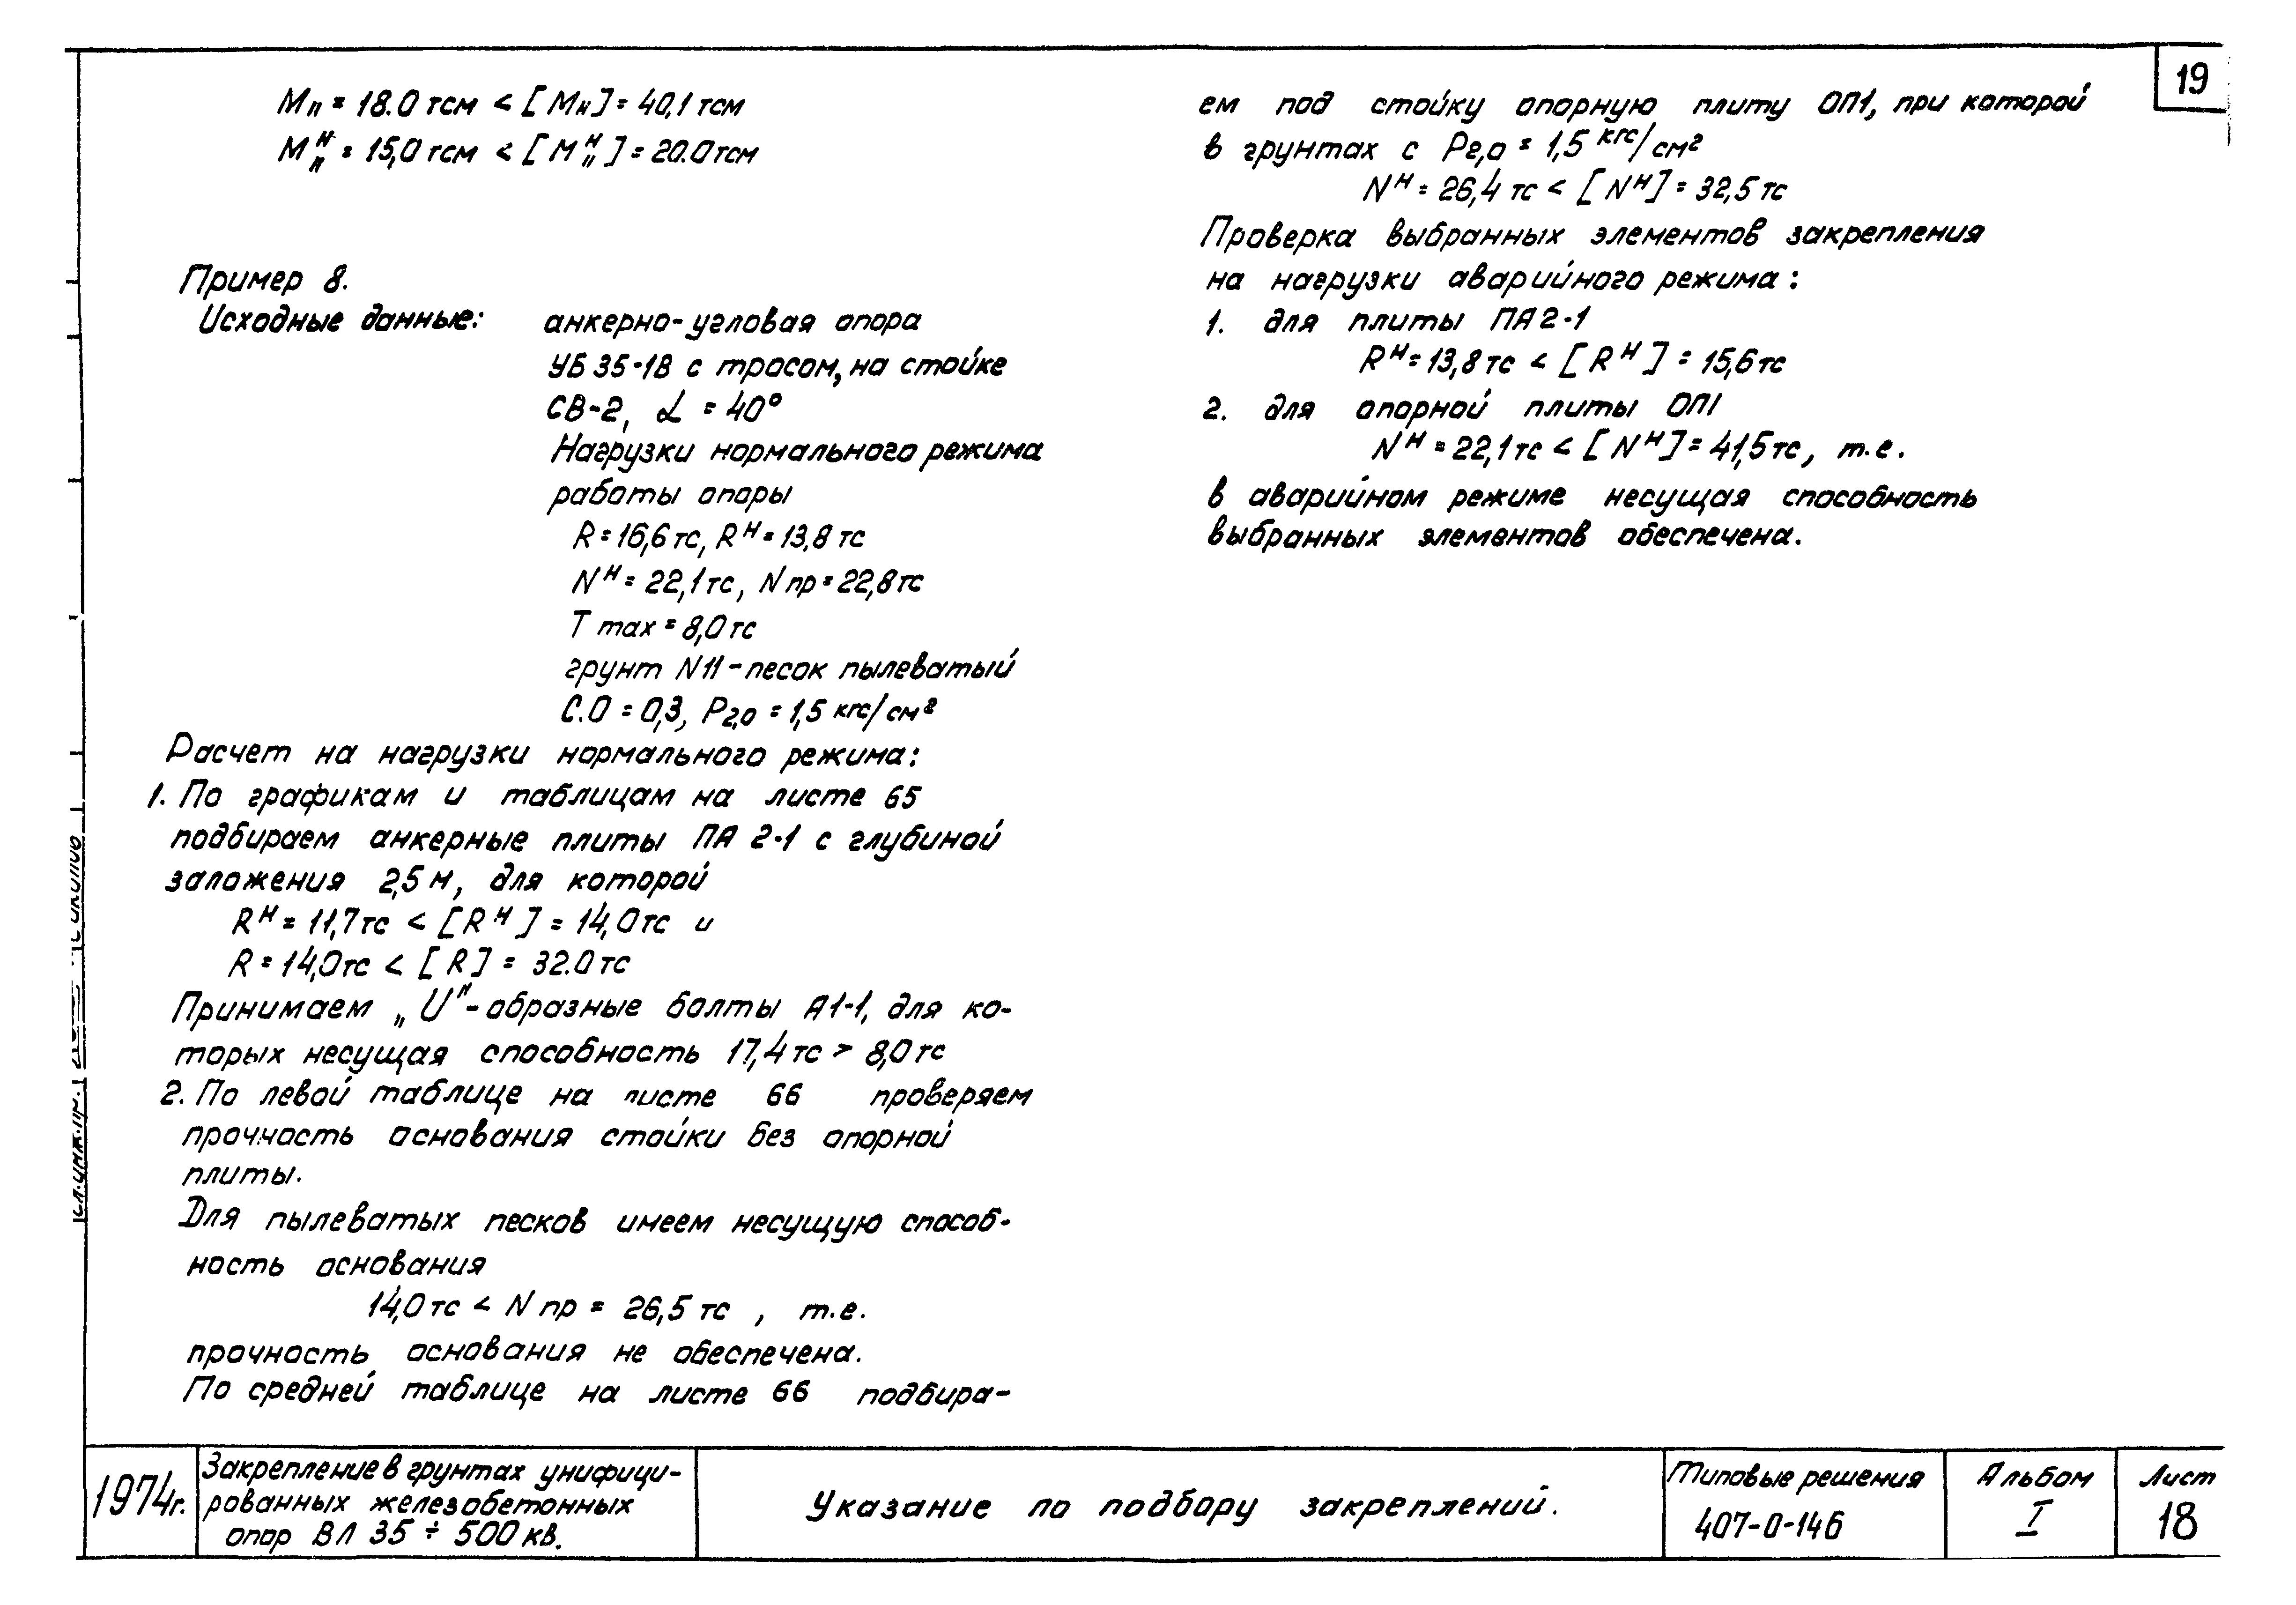 19
Mп = 18.0 тсм < [Mн] = 40,1 тсм
Mᴴп = 15,0 тсм < [Mᴴп] = 20.0 тсм
Пример 8.
Исходные данные: анкерно-угловая опора
УБ 35-1В с тросом, на стойке
СВ-2, α = 40°
Нагрузки нормального режима
работы опоры
R = 16,6 тс, Rᴴ = 13,8 тс
Nᴴ = 22,1 тс, Nпр = 22,8 тс
T max = 8,0 тс
грунт N11 - песок пылеватый
С.О = 0,3, Р2,0 = 1,5 кгс/см²
Расчет на нагрузки нормального режима:
1. По графикам и таблицам на листе 65
подбираем анкерные плиты ПА 2-1 с глубиной
заложения 2,5 м, для которой
Rᴴ = 11,7 тс < [Rᴴ] = 14,0 тс и
R = 14,0 тс < [R] = 32.0 тс
Принимаем „U"-образные болты А1-1, для ко-
торых несущая способность 17,4 тс > 8,0 тс
2. По левой таблице на листе 66 проверяем
прочность основания стойки без опорной
плиты.
Для пылеватых песков имеем несущую способ-
ность основания
14,0 тс < N пр = 26,5 тс , т.е.
прочность основания не обеспечена.
По средней таблице на листе 66 подбира-
ем под стойку опорную плиту ОП1, при которой
в грунтах с Р2,0 = 1,5 кгс/см²
Nᴴ = 26,4 тс < [Nᴴ] = 32,5 тс
Проверка выбранных элементов закрепления
на нагрузки аварийного режима:
1. для плиты ПА2-1
Rᴴ = 13,8 тс < [Rᴴ] = 15,6 тс
2. для опорной плиты ОП1
Nᴴ = 22,1 тс < [Nᴴ] = 41,5 тс, т.е.
в аварийном режиме несущая способность
выбранных элементов обеспечена.
1974г.
Закрепление в грунтах унифици-
рованных железобетонных
опор ВЛ 35 ÷ 500 кв.
Указание по подбору закреплений.
Типовые решения
407-0-146
Альбом
I
Лист
18